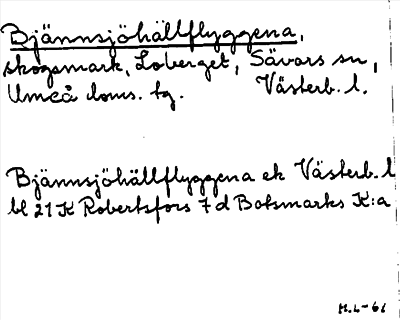 Bjännsjöhällflyggena,
skogsmark, Loberget, Sävars sn,
Umeå doms. tg. Västerb. l.
Bjännsjöhällflyggena ek Västerb. l
bl 21 K Robertsfors 7 d Botsmarks K:a
M.L-66